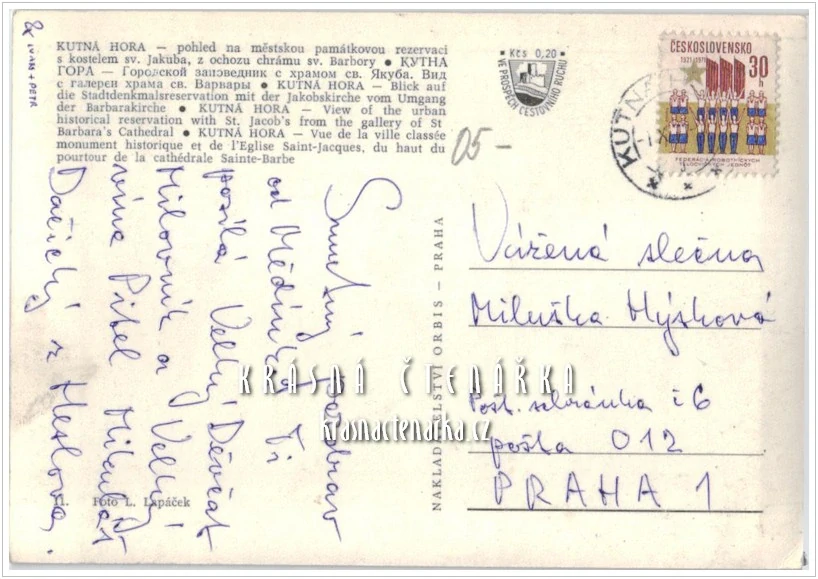 KUTNÁ HORA — pohled na městskou památkovou rezervaci
s kostelem sv. Jakuba, z ochozu chrámu sv. Barbory ● КУТНА
ГОРА — Городской заповедник с храмом св. Якуба. Вид
с галереи храма св. Варвары ● KUTNÁ HORA — Blick auf
die Stadtdenkmalsreservation mit der Jakobskirche vom Umgang
der Barbarakirche ● KUTNÁ HORA — View of the urban
historical reservation with St. Jacob's from the gallery of St
Barbara's Cathedral ● KUTNÁ HORA — Vue de la ville classée
monument historique et de l'Eglise Saint-Jacques, du haut du
pourtour de la cathédrale Sainte-Barbe
● Kčs 0,20 ●
VE PROSPĚCH CESTOVNÍHO RUCHU
ČESKOSLOVENSKO
1921-1971
30 h
FEDERACE ROBOTNICKÝCH
TĚLOCVIČNÝCH JEDNOT
KUTNÁ
05-
Smutný pozdrav
od Mědínka Ti
posílá Velký Děvčat
Milovník a Velký
vína Pitel Mikuláš
Dačický z Heslova.
NAKLADATELSTVÍ ORBIS — PRAHA
Vážená slečna
Miluška Hýsková
Post. schránka č 6
pošta 012
PRAHA 1
KRÁSNÁ ČTENÁŘKA
krasnactenarka.cz
11. Foto L. Lapáček